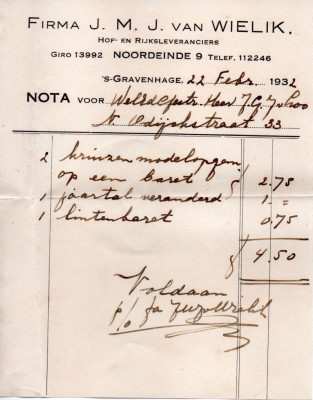 FIRMA J. M. J. VAN WIELIK.
HOF- EN RIJKSLEVERANCIERS
GIRO 13992 NOORDEINDE 9 TELEF. 112246
'S-GRAVENHAGE, 22 Febr. 1932
NOTA VOOR Heer J. G.
N. Odijckstraat 33
2
op een baret 2.75
1 jaartal veranderd 1.=
1 lintenbaret 0.75
4.50
Voldaan
p/o fa